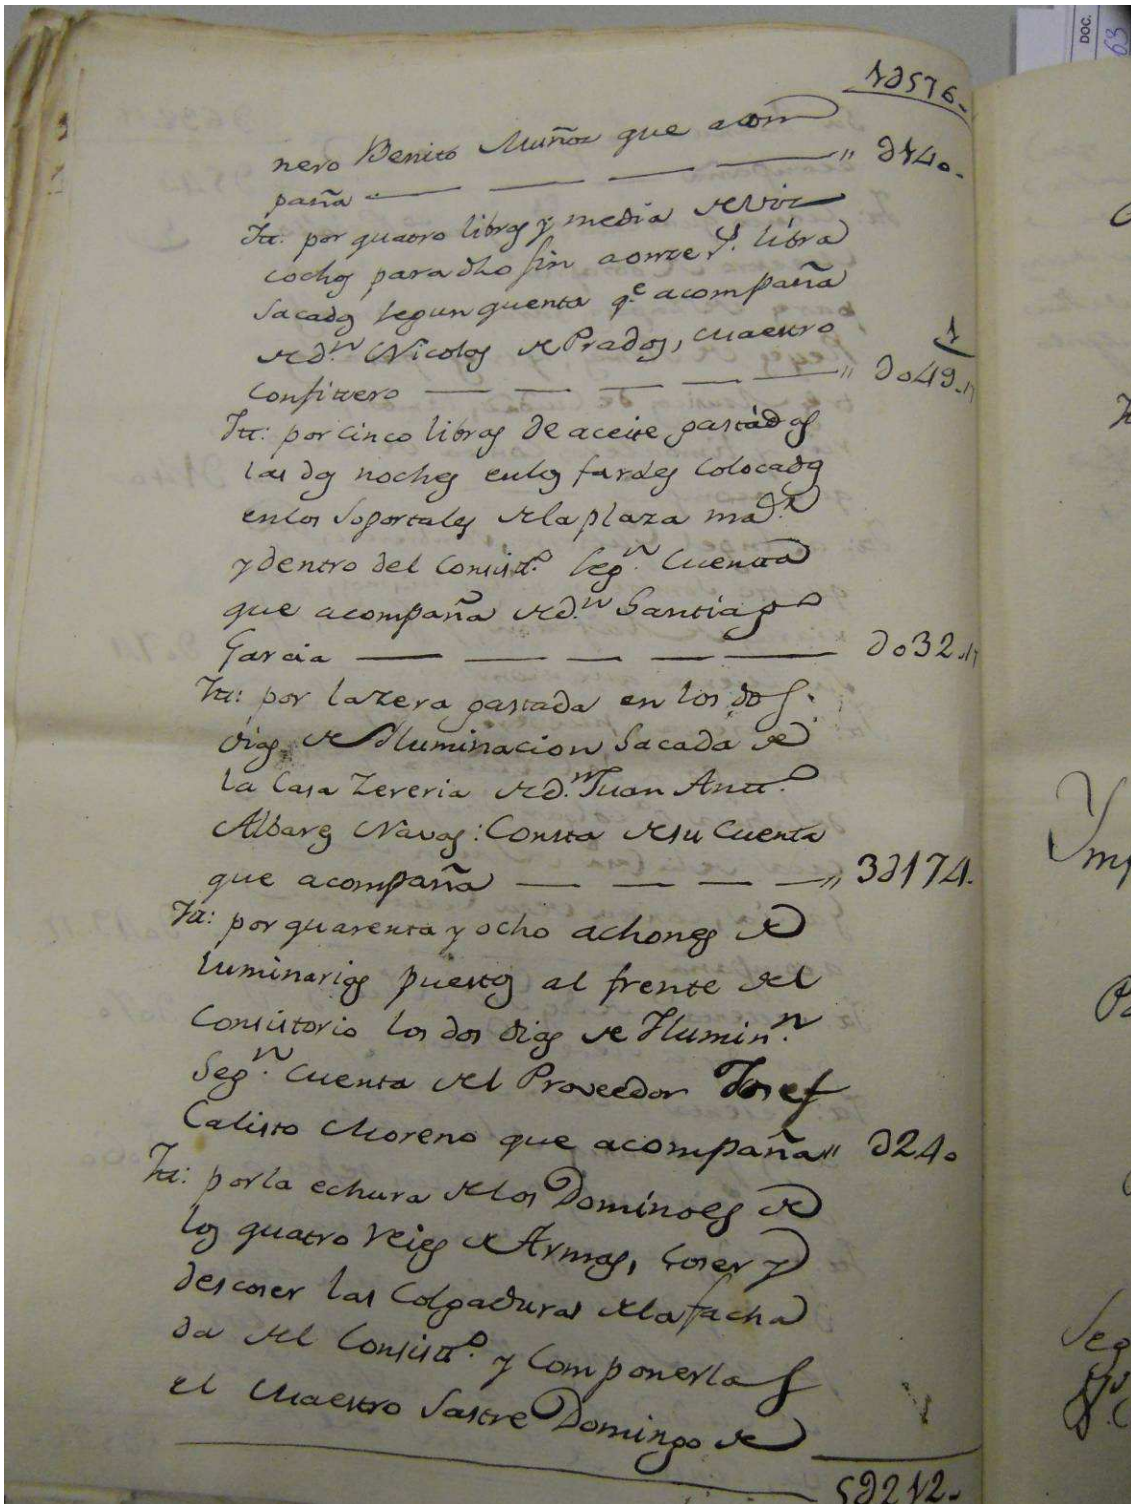 1∂576.
nero Benito Muñoz que acom
paña — — — — " ∂140.
Itt: por quatro libras y media de viz
cochos para dho fin a onze rs. libra
sacados segun quenta qe. acompaña
de dn. Nicolas de Prados, Maestro
Confitero — — — — — " ∂049.17
Itt: por cinco libras de aceite gastados
las dos noches en los faroles Colocados
en los Soportales de la plaza mar.
y dentro del Consistto. segn. Cuenta
que acompaña de dn. Santiago
Garcia — — — — — ∂032.17
Itt: por la zera gastada en los dos
dias de Iluminacion Sacada de
la Casa Zereria de dn. Juan Antto.
Albares Navas: Consta de su Cuenta
que acompaña — — — — " 3∂174.
Itt: por quarenta y ocho achones de
luminarias puestos al frente del
Consistorio los dos dias de Iluminn.
Segn. Cuenta del Proveedor Josef
Calisto Moreno que acompaña " ∂240
Itt: por la echura de los Dominoes de
los quatro Reies de Armas, Coser y
descoser las Colgaduras de la facha
da del Consistto. y Componerlas
el Maestro Sastre Domingo de
5∂212.
DOC.
63